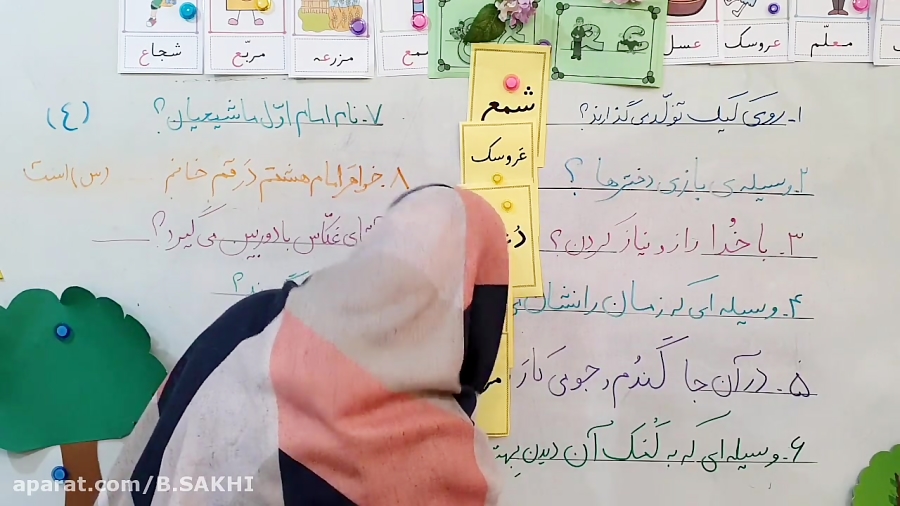 شجاع
مربّع
مزرعه
عسل
عروسک
معلّم
شمع
عروسک
۱- روی کیک تولّد می گذارند؟
۲. وسیله ی بازی دخترها ؟
۳. با خُدا راز و نیاز کردن؟
۴. وسیله ای که زمان را نشان
۵. در آن جا گندُم و جو می کارَ
۶. وسیله ای که به کُمک آن دیدن بهتَ
۷. نام امام اوّل ما شیعیان؟ (٤)
۸. خواهرِ امام هشتم در قم خانم ... (س) است
عکّاس با دوربین می گیرد؟
aparat.com/B.SAKHI